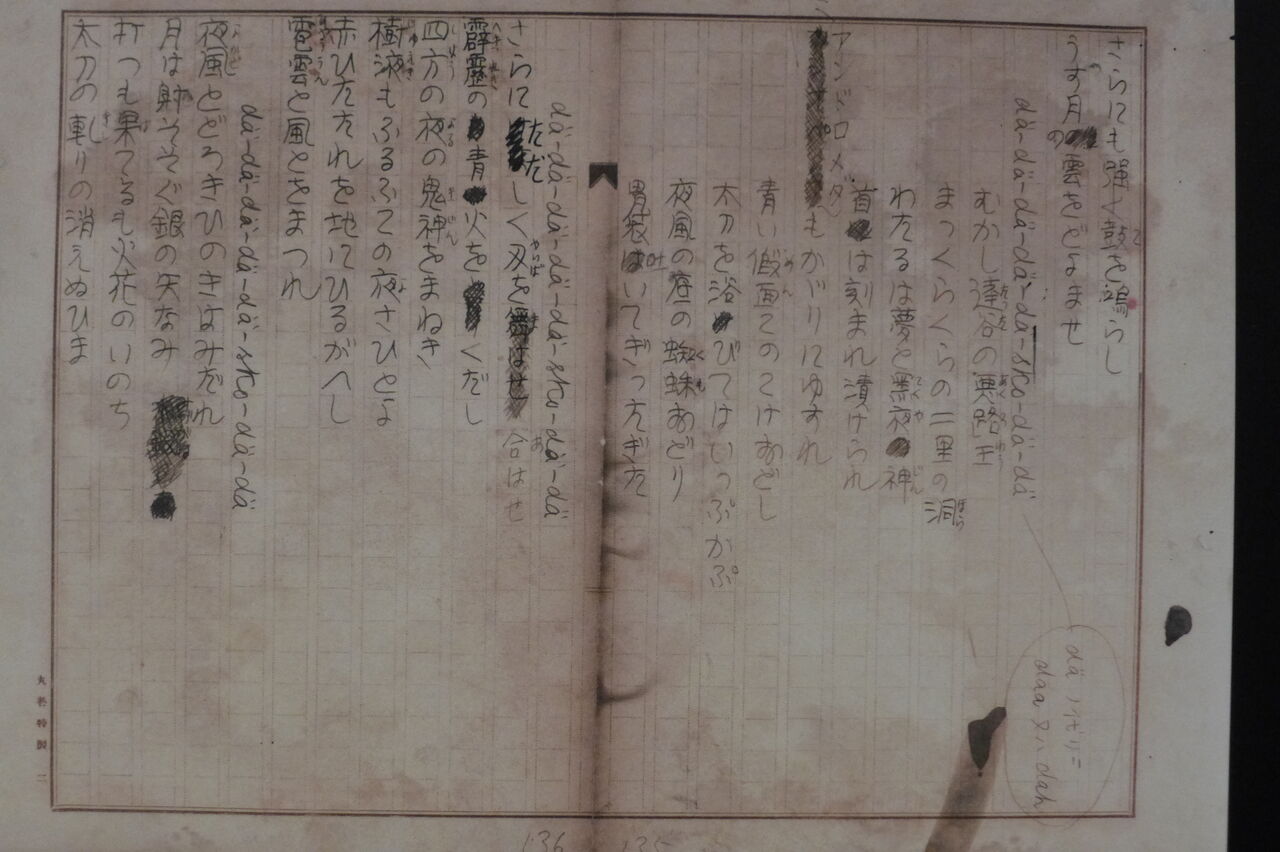 さらにも強く鼓を鳴らし
うす月の雲をどよませ
dä-dä-dä-dä-dä-dä-sko-dä-dä
むかし達谷の悪路王
まつくらくらの二里の洞
わたるは夢と黒夜神
首は刻まれ漬けられ
アンドロメダもかゞりにゆすれ
青い仮面このこけおどし
太刀を浴びてはいつぷかぷ
夜風の底の蜘蛛おどり
胃袋はいてぎつたぎた
dä-dä-dä-dä-dä-dä-sko-dä-dä
さらにただしく刃を合はせ
霹靂の青火をくだし
四方の夜の鬼神をまねき
樹液もふるふこの夜さひとよ
赤ひたたれを地にひるがへし
雹雲と風とをまつれ
dä-dä-dä-dä-dä-sko-dä-dä
夜風とどろきひのきはみだれ
月は射そそぐ銀の矢なみ
打つも果てるも火花のいのち
太刀の軋りの消えぬひま
dä ノ代リニ
daa 又ハ dah
136
135